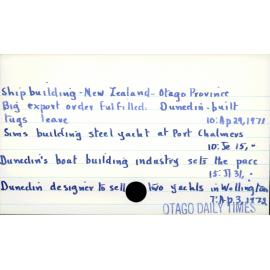 Shipbuilding - New Zealand - Otago Province
Big export order fulfilled. Dunedin-built
tugs leave 10: Ap 29, 1971
Sims building steel yacht at Port Chalmers
10: Je 15, "
Dunedin's boat building industry sets the pace
15: Jl 31, "
Dunedin designer to sell two yachts in Wellington
7: Ap. 3, 1972
OTAGO DAILY TIMES